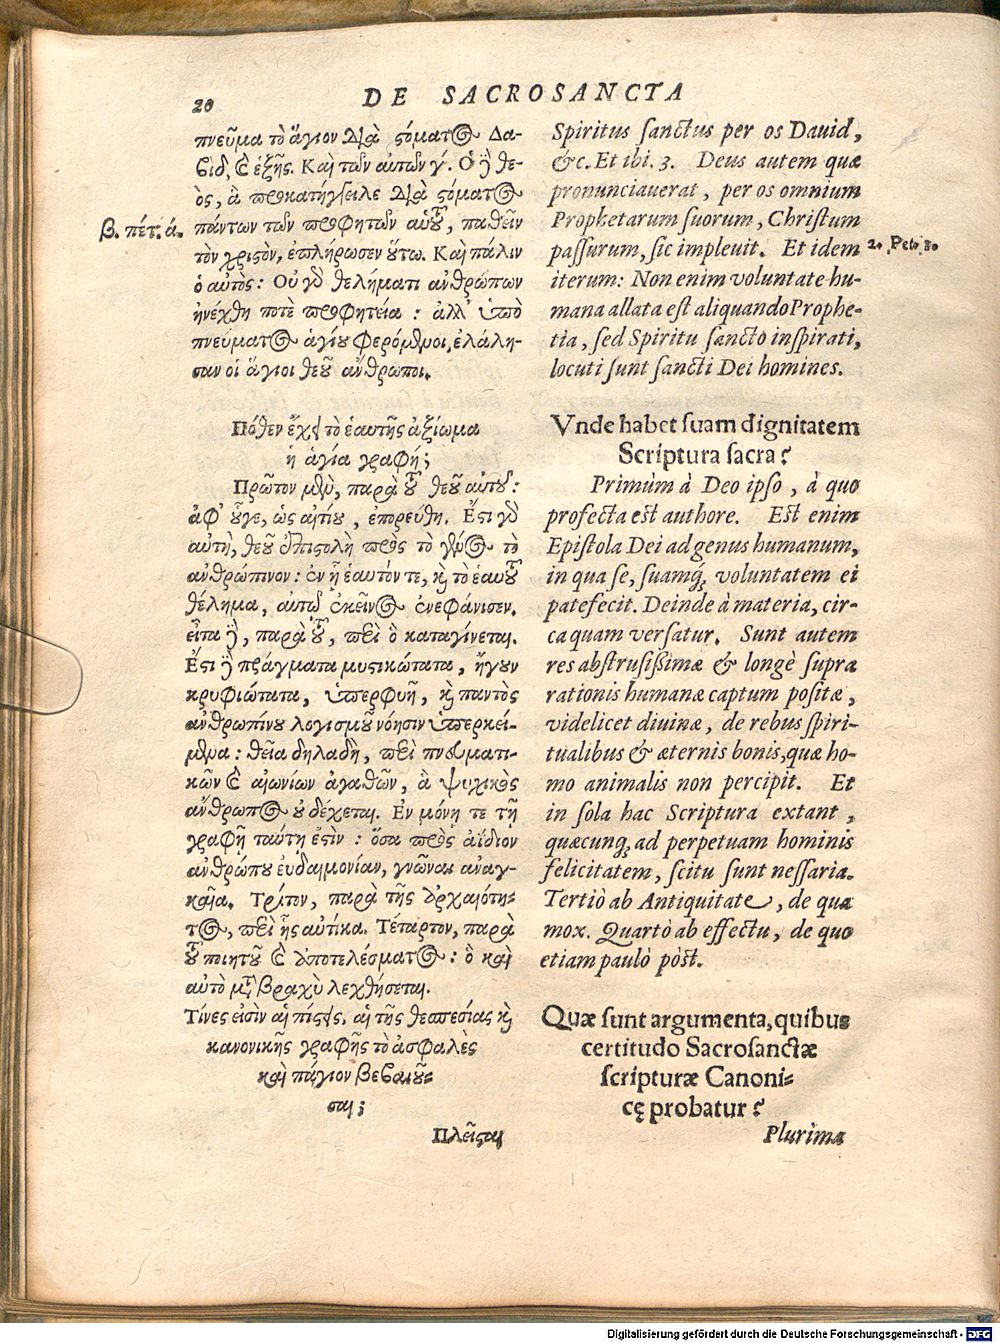 20
DE SACROSANCTA
πνεῦμα τὸ ἅγιον διὰ στόματος Δα-
βὶδ, καὶ ἑξῆς. Καὶ τῶν αὐτῶν γ´. Ὁ δὲ θε-
ὸς, ἃ προκατήγγειλε διὰ στόματος
β. πέτ. ά.
πάντων τῶν προφητῶν αὐτοῦ, παθεῖν
τὸν χριστὸν, ἐπλήρωσεν οὕτω. Καὶ πάλιν
ὁ αὐτὸς: Οὐ γὰρ θελήματι ἀνθρώπων
ἠνέχθη ποτὲ προφητεία: ἀλλ' ὑπὸ
πνεύματος ἁγίου φερόμενοι, ἐλάλη-
σαν οἱ ἅγιοι θεοῦ ἄνθρωποι.
Πόθεν ἔχει τὸ ἑαυτῆς ἀξίωμα
ἡ ἁγία γραφή;
Πρῶτον μὲν, παρὰ τοῦ θεοῦ αὐτοῦ:
ἀφ' οὗγε, ὡς αἰτίου, ἐπορεύθη. Ἔστι γὰρ
αὐτὴ, θεοῦ ἐπιστολὴ πρὸς τὸ γένος τὸ
ἀνθρώπινον: ἐν ᾗ ἑαυτόν τε, καὶ τὸ ἑαυτοῦ
θέλημα, αὐτῷ ἐκεῖνος ἐνεφάνισεν.
εἶτα δὲ, παρὰ τοῦ, περὶ ὃ καταγίνεται.
Ἔστι δὲ πράγματα μυστικώτατα, ἤγουν
κρυφιώτατα, ὑπερφυῆ, καὶ παντὸς
ἀνθρωπίνου λογισμοῦ νόησιν ὑπερκεί-
μενα: θεῖα δηλαδὴ, περὶ πνευματι-
κῶν καὶ αἰωνίων ἀγαθῶν, ἃ ψυχικὸς
ἄνθρωπος οὐ δέχεται. Ἐν μόνῃ τε τῇ
γραφῇ ταύτῃ ἐστὶν: ὅσα πρὸς ἀΐδιον
ἀνθρώπου εὐδαιμονίαν, γνῶναι ἀναγ-
καῖα. Τρίτον, παρὰ τῆς ἀρχαιότη-
τος, περὶ ἧς αὐτίκα. Τέταρτον, παρὰ
τοῦ ποιητοῦ καὶ ἀποτελέσματος: ὃ καὶ
αὐτὸ μετὰ βραχὺ λεχθήσεται.
Τίνες εἰσὶν αἱ πίστεις, αἱ τῆς θεσπεσίας καὶ
κανονικῆς γραφῆς τὸ ἀσφαλὲς
καὶ πάγιον βεβαιοῦ-
σαι;
Πλεῖσται
Spiritus sanctus per os Dauid,
&c. Et ibi. 3. Deus autem quæ
pronunciauerat, per os omnium
Prophetarum suorum, Christum
passurum, sic impleuit. Et idem
2. Pet. 3.
iterum: Non enim voluntate hu-
mana allata est aliquando Prophe-
tia, sed Spiritu sancto inspirati,
locuti sunt sancti Dei homines.
Vnde habet suam dignitatem
Scriptura sacra?
Primùm à Deo ipso, à quo
profecta est authore. Est enim
Epistola Dei ad genus humanum,
in qua se, suamq́; voluntatem ei
patefecit. Deinde à materia, cir-
ca quam versatur. Sunt autem
res abstrusissimæ & longè supra
rationis humanæ captum positæ,
videlicet diuinæ, de rebus spiri-
tualibus & æternis bonis, quæ ho-
mo animalis non percipit. Et
in sola hac Scriptura extant,
quæcunq; ad perpetuam hominis
felicitatem, scitu sunt nessaria.
Tertiò ab Antiquitate, de qua
mox. Quartò ab effectu, de quo
etiam paulò pòst.
Quæ sunt argumenta, quibus
certitudo Sacrosanctæ
scripturæ Canoni-
cę probatur?
Plurima
Digitalisierung gefördert durch die Deutsche Forschungsgemeinschaft - DFG